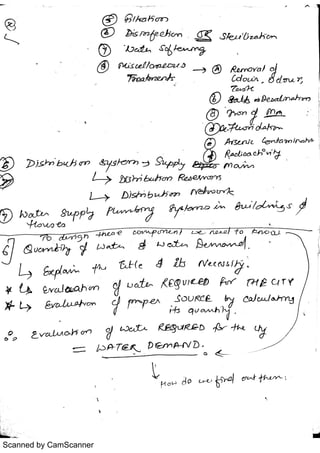 ⑤ Filtration
⑥ Disinfection OR Sterilization
⑦ Water Softening
⑧ Miscellaneous Treatments → ⓐ Removal of Colour, Odour, Taste
ⓑ Salts → Desalination
ⓒ Iron & Mn
ⓓ Defluoridation
ⓔ Arsenic Contamination
ⓕ Radioactivity
Distribution System → Supply mains
↳ Distribution Reservoirs
↳ Distribution Network
Water Supply Plumbing Systems in Buildings & Houses
To design these components we need to know
Quantity of Water & Water Demand.
↳ Explain the Title & its Necessity.
* ↳ Evaluation of water REQUIRED for THE CITY
* ↳ Evaluation of proper SOURCE by calculating its quantity.
∴ Evaluation of water REQUIRED for the city
= WATER DEMAND.
How do we find out them.
Scanned by CamScanner